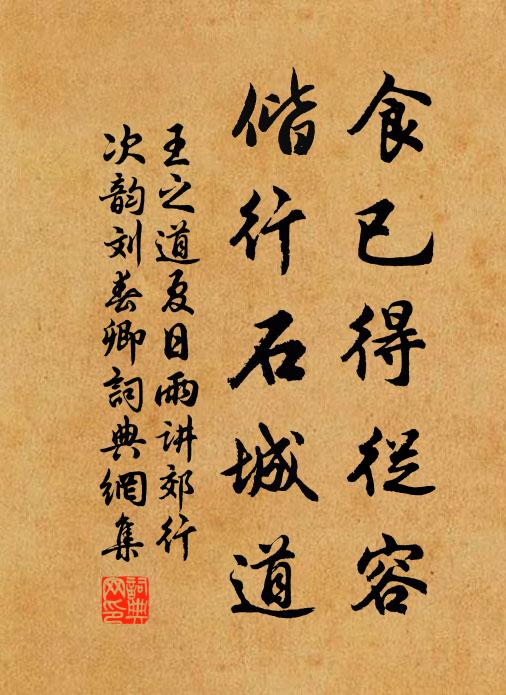 食已得從容
偕行石城道
王之道夏日雨讲郊行
次韵刘春卿詞典網集
詞典網印